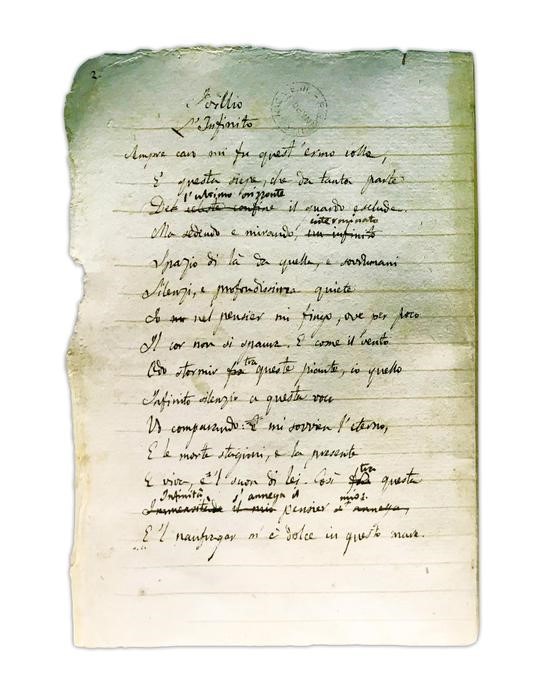 2.
Idillio
L'Infinito
Sempre caro mi fu quest'ermo colle,
E questa siepe, che da tanta parte
l'ultimo orizzonte
Del celeste confine il guardo esclude.
interminato
Ma sedendo e mirando, un infinito
Spazio di là da quella, e sovrumani
Silenzi, e profondissima quiete
Io no nel pensier mi fingo, ove per poco
Il cor non si spaura. E come il vento
tra
Odo stormir fra queste piante, io quello
Infinito silenzio a questa voce
Vo comparando: E mi sovvien l'eterno,
E le morte stagioni, e la presente
E viva, e 'l suon di lei. Così
tra
fra questa
Infinità s'annega il mio:
Immensitade il mio pensier s'annega,
E 'l naufragar m'è dolce in questo mare.